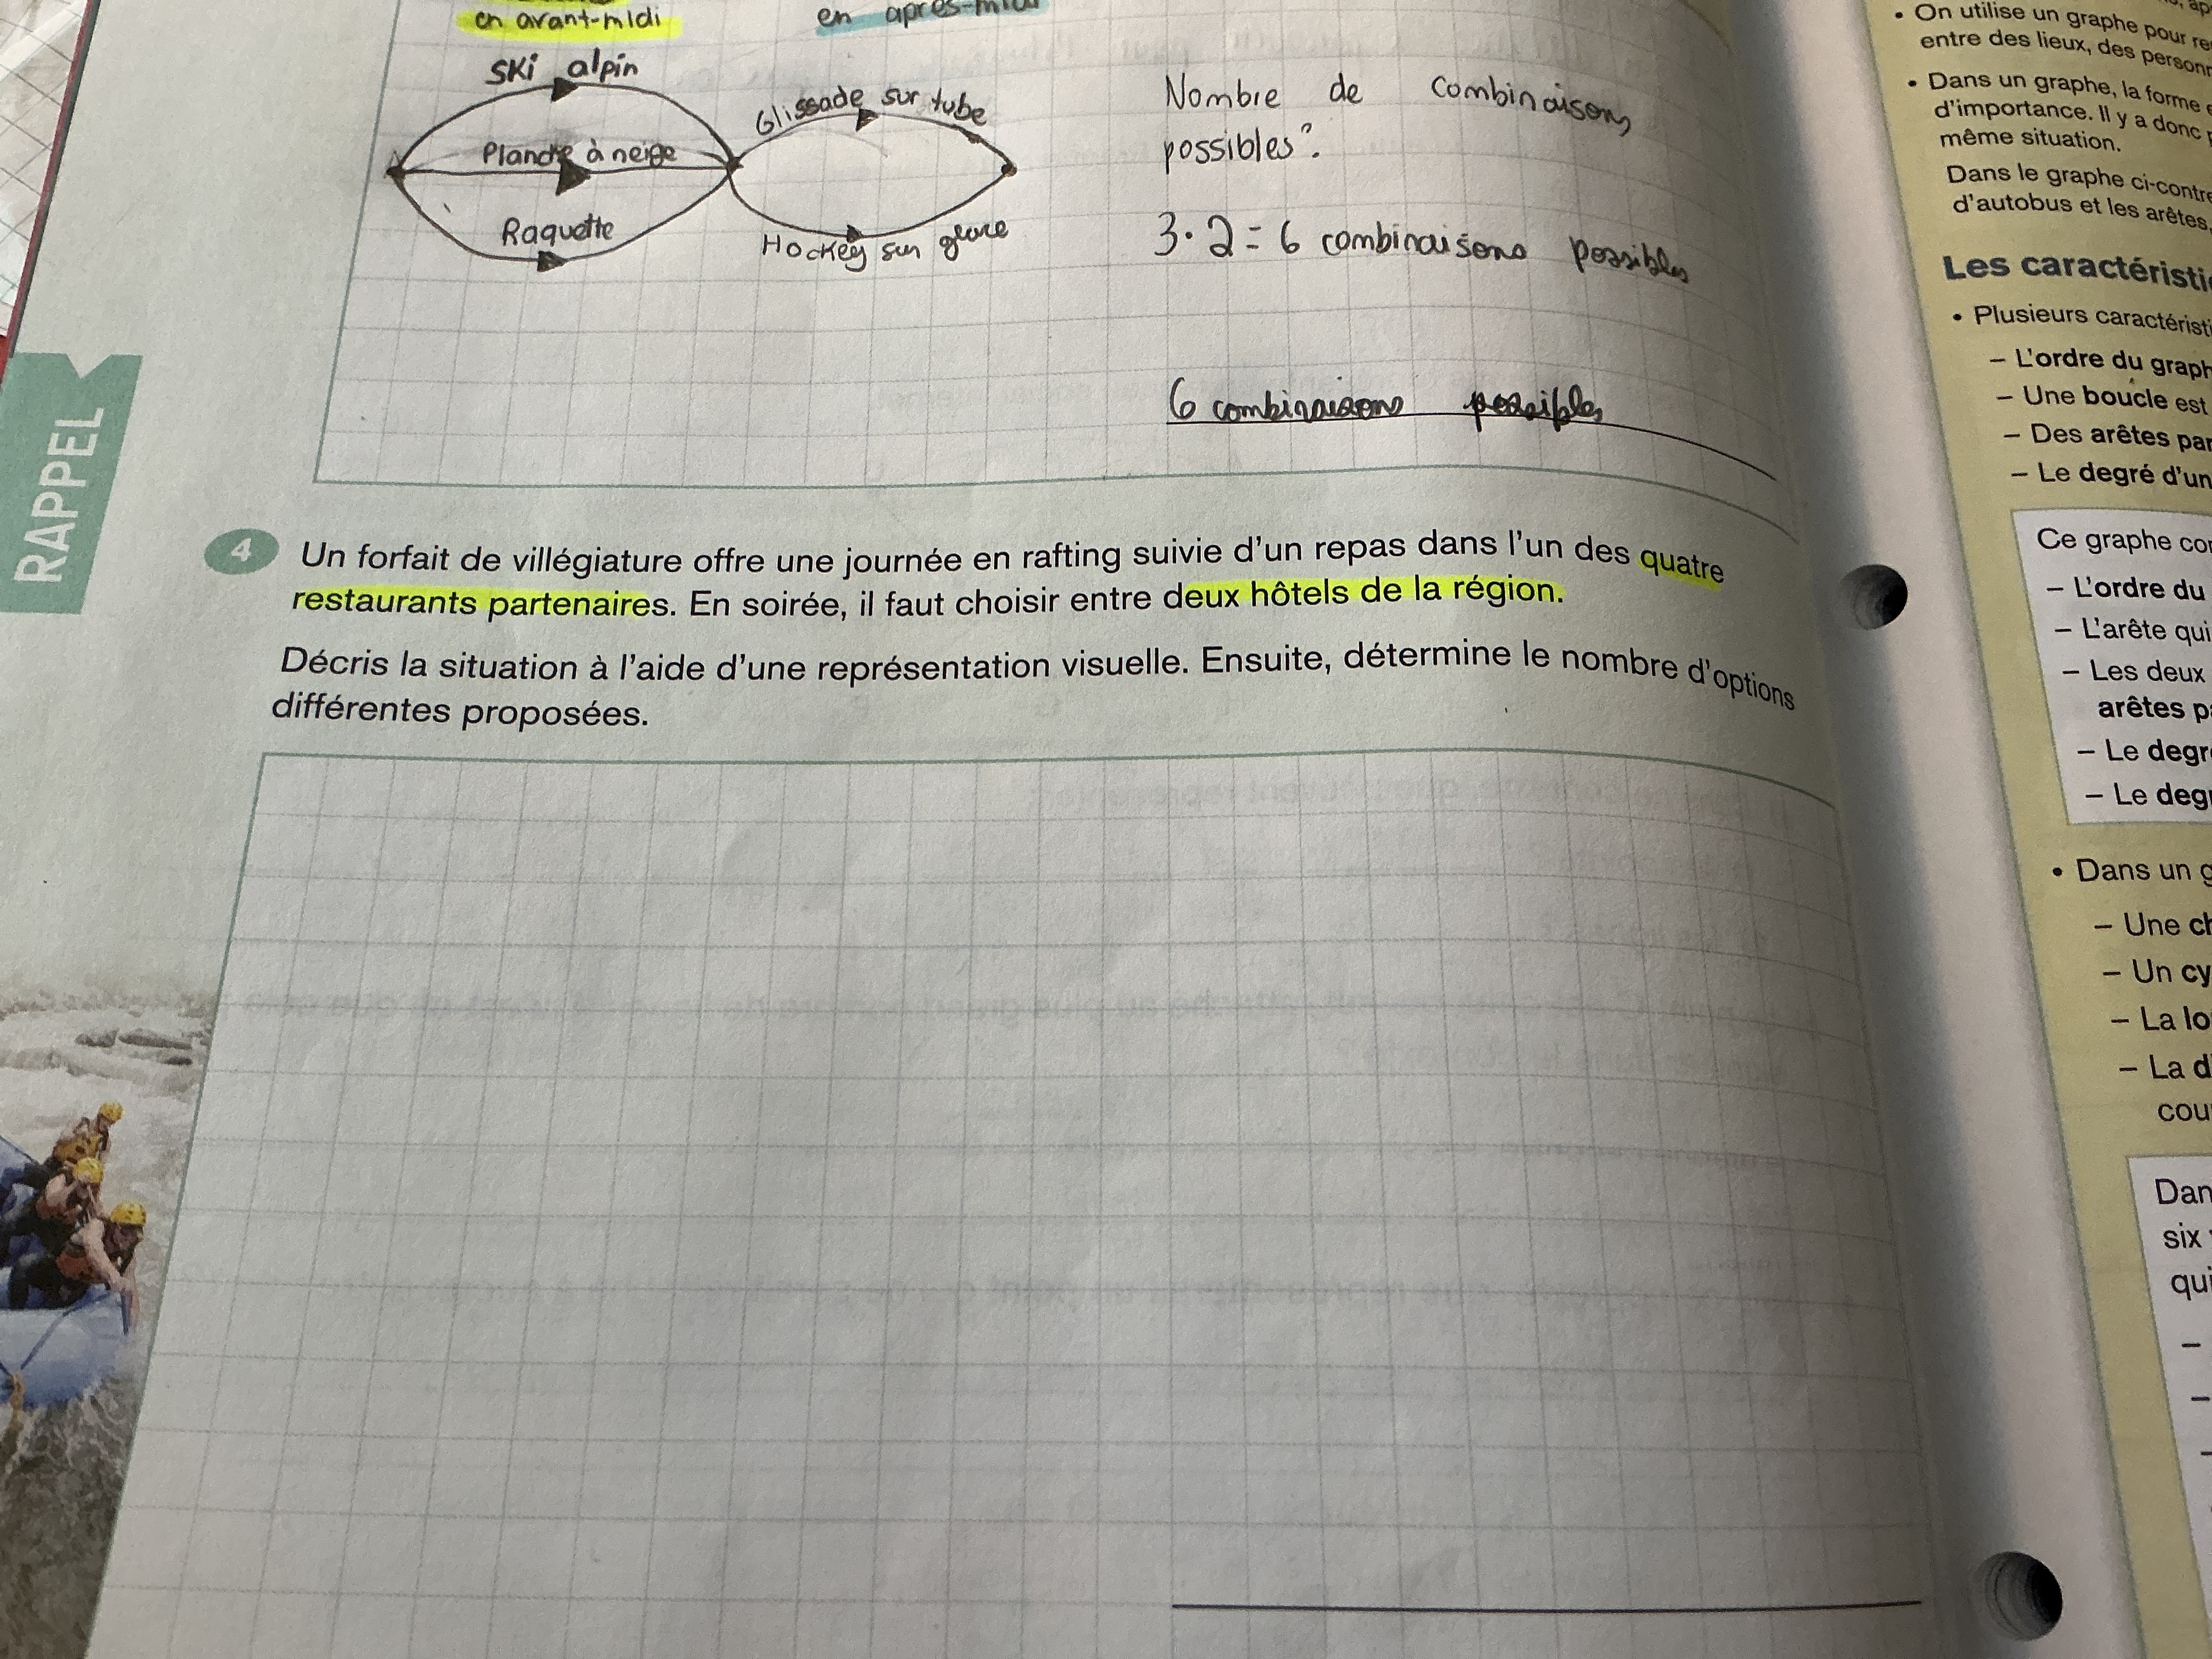 en avant-midi
en après-midi
Ski alpin
Glissade sur tube
Planche à neige
Raquette
Hockey sur glace
Nombre de combinaisons
possibles?
3·2=6 combinaisons possibles
6 combinaisons possibles
RAPPEL
4 Un forfait de villégiature offre une journée en rafting suivie d'un repas dans l'un des quatre
restaurants partenaires. En soirée, il faut choisir entre deux hôtels de la région.
Décris la situation à l'aide d'une représentation visuelle. Ensuite, détermine le nombre d'options
différentes proposées.
• On utilise un graphe pour
entre des lieux, des
• Dans un graphe, la forme
d'importance. Il y a donc
même situation.
Dans le graphe ci-contre
d'autobus et les arêtes,
Les
• Plusieurs
– L'ordre du
– Une boucle est
– Des arêtes
– Le degré d'un
Ce graphe
– L'ordre du
– L'arête qui
– Les deux
arêtes
– Le
– Le
• Dans un
– Une
– Un
– La
– La
six